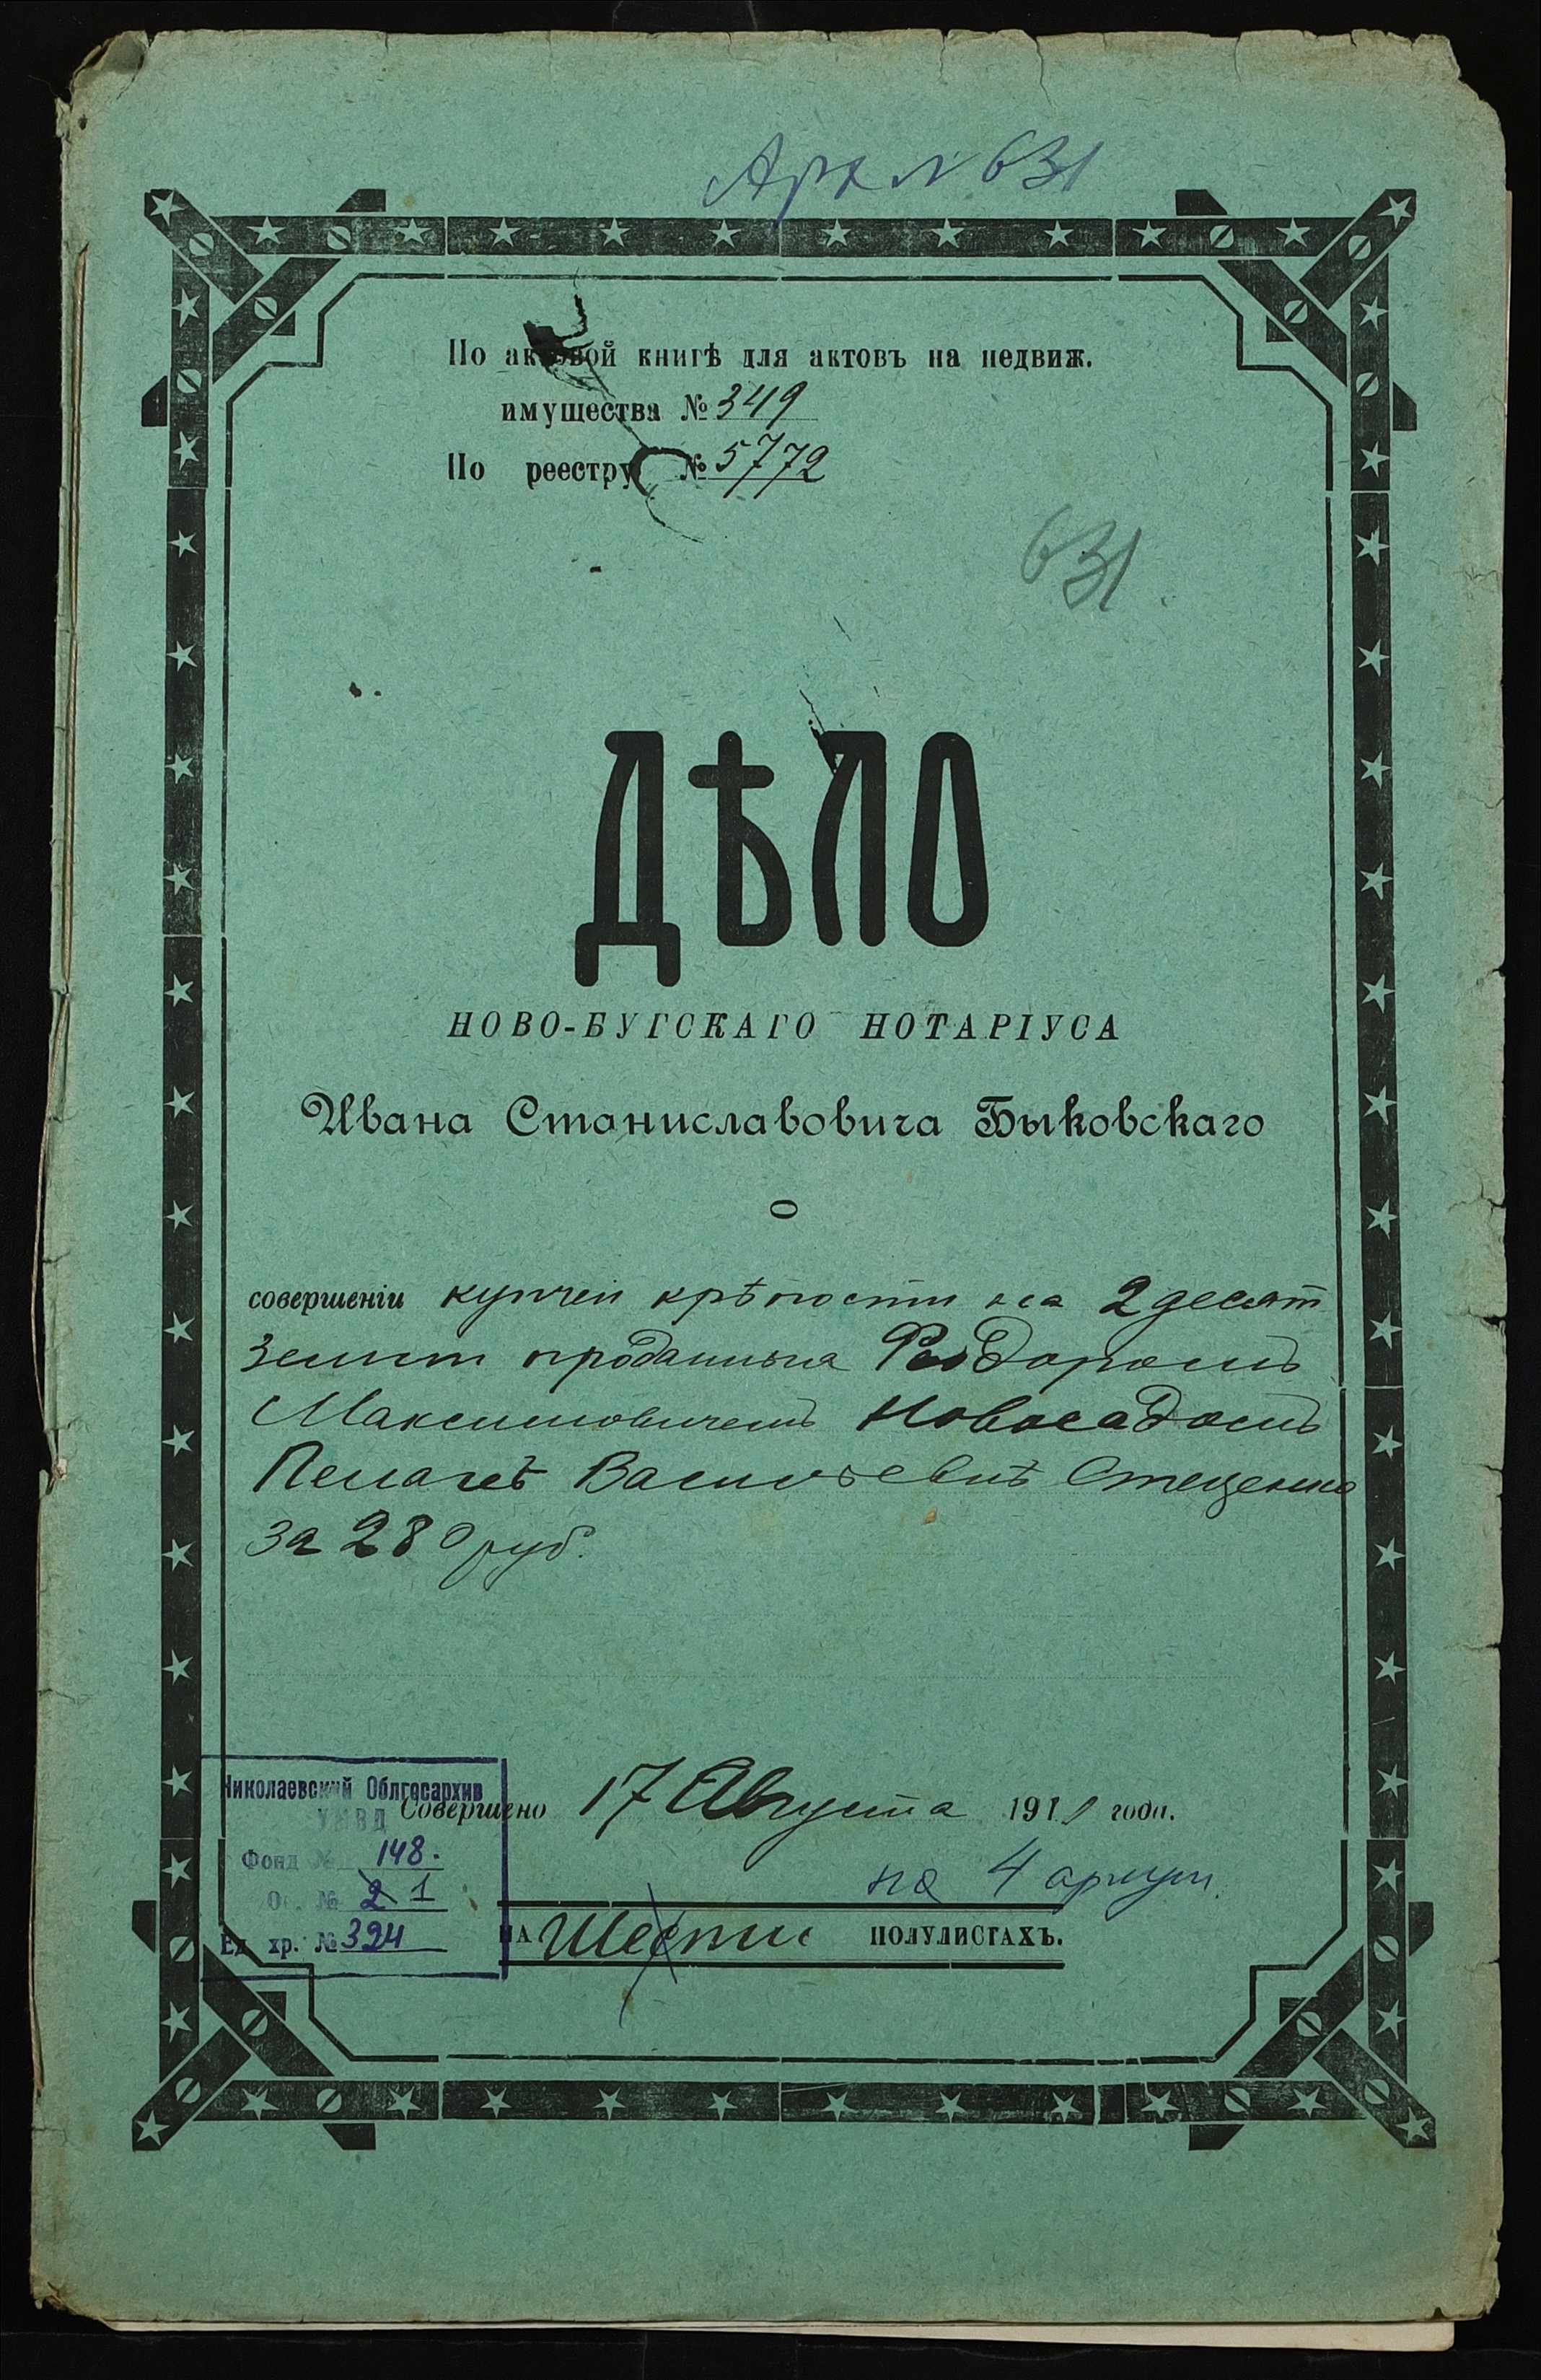 Арх № 631
По актовой книгѣ для актовъ на недвиж.
имущества № 349
По реестру № 5772
631.
ДѢЛО
НОВО-БУГСКАГО НОТАРІУСА
Ивана Станиславовича Быковскаго
О
совершеніи купчей крѣпости на 2 десят
земли проданныя Феодоромъ
Максимовичемъ Новосадомъ
Пелагеѣ Васильевнѣ Стеценко
за 280 руб.
Николаевский Облгосархив
УМВД
Совершено 17 Августа 1911 года.
Фонд № 148.
Оп. № 2 1
на 4
Ед. хр. № 324
НА Шести ПОЛУЛИСТАХЪ.